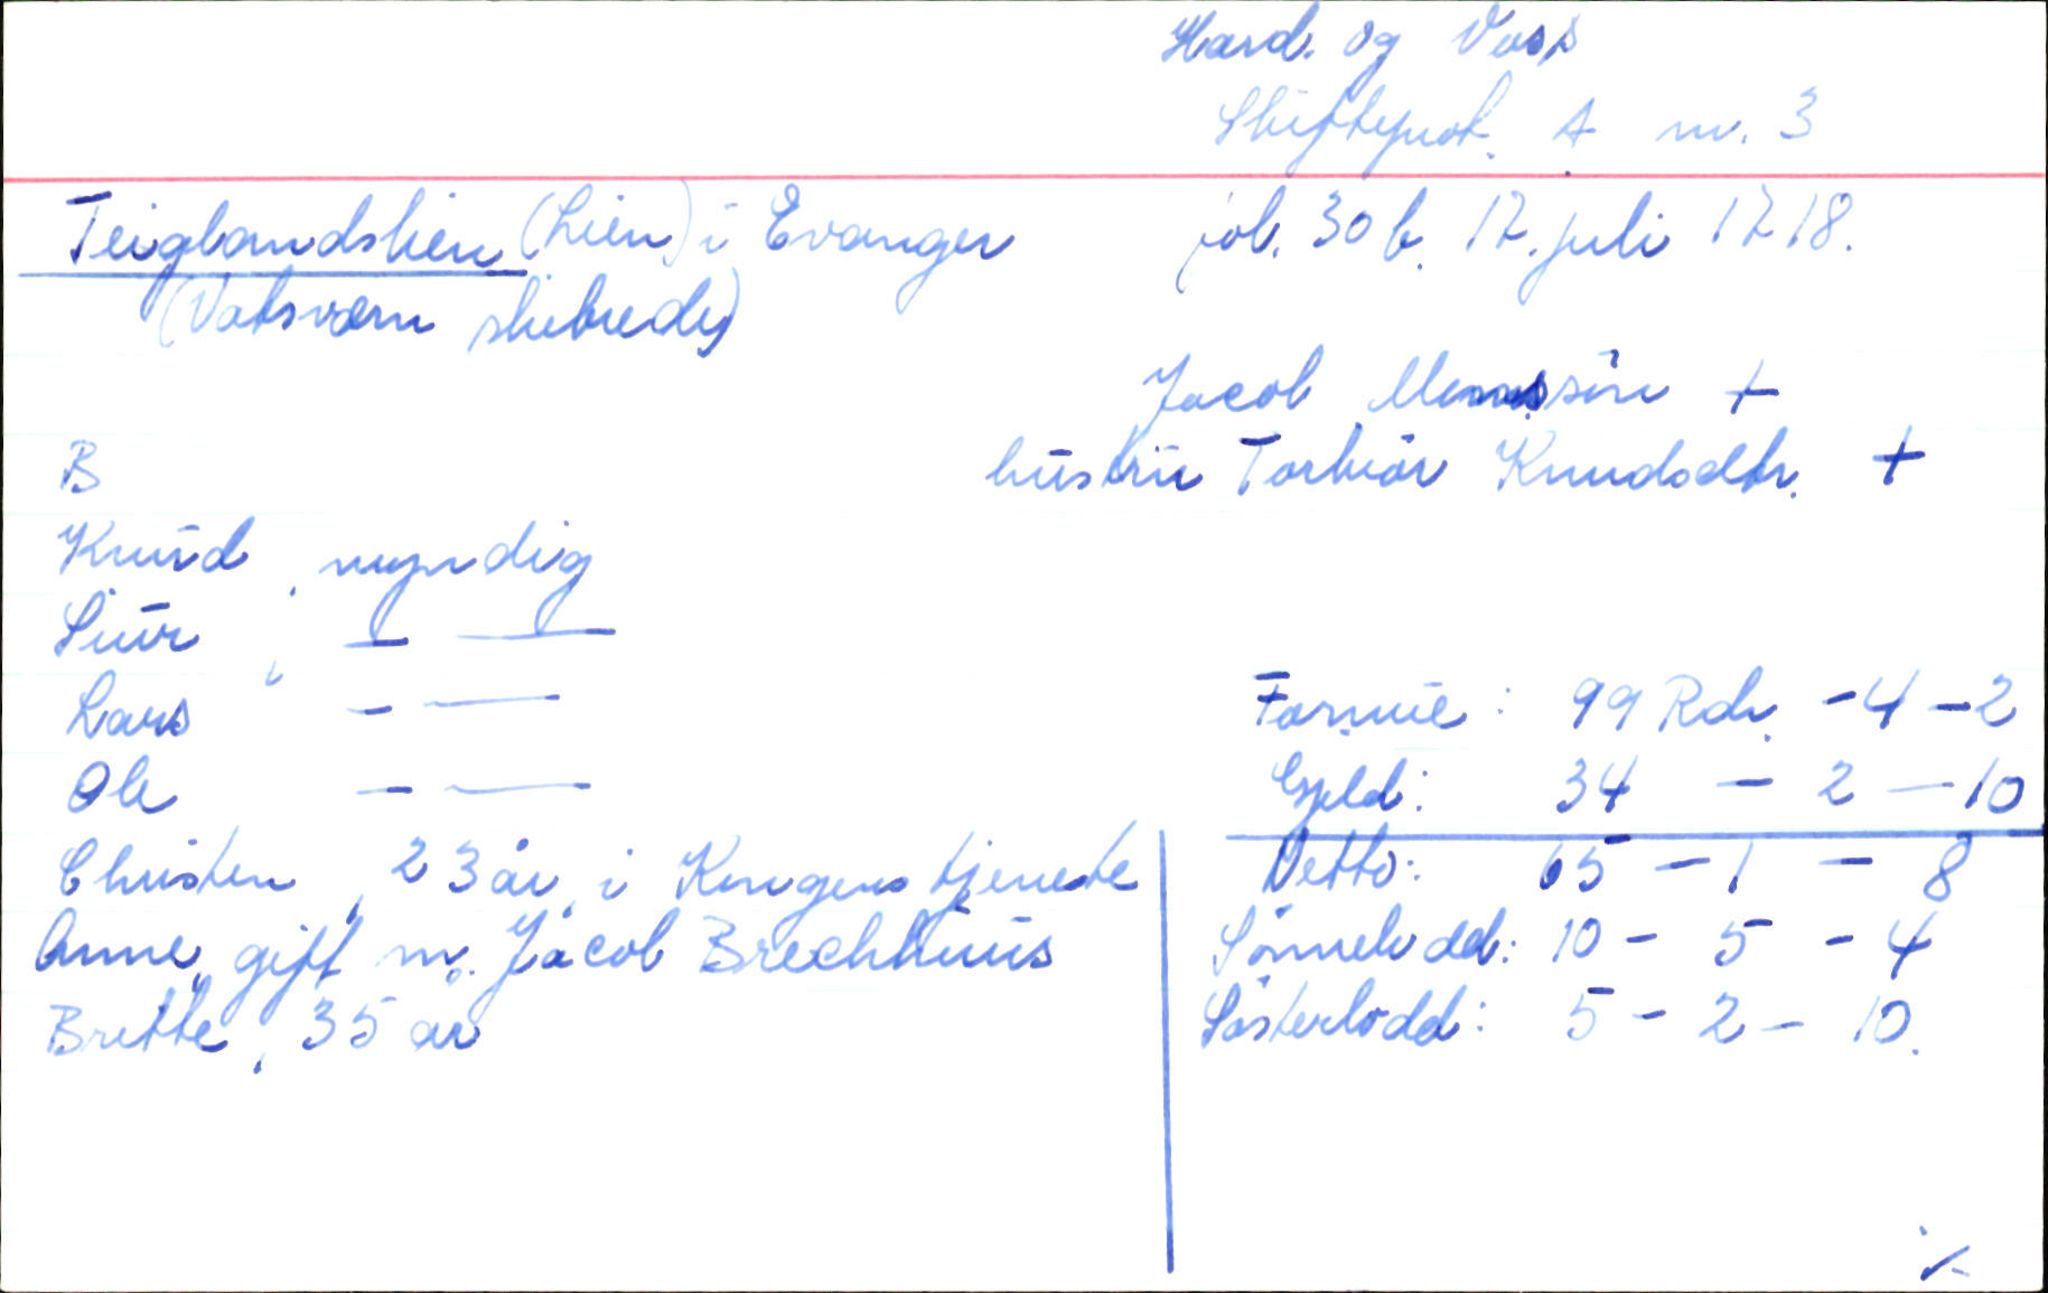 Hard. og Voss
Skifteprot. A nr. 3
Teiglandslien (Lien) i Evanger fol. 30 b. 17. juli 1718.
(Vatsvørn skibrede)
Jacob Monssön +
B hüstrü Torbiör Knudsdtr. +
Knüd, myndig
Siür, — —
Lars - —
Ole - —
Formüe: 99 Rdr. - 4 - 2
Gjeld: 34 - 2 - 10
Christen, 23 år, i Kongens tjeneste Netto: 65 - 1 - 8
Anne, gift m. Jacob Brechhüüs Sönnelodd: 10 - 5 - 4
Britte, 35 år Sösterlodd: 5 - 2 - 10.